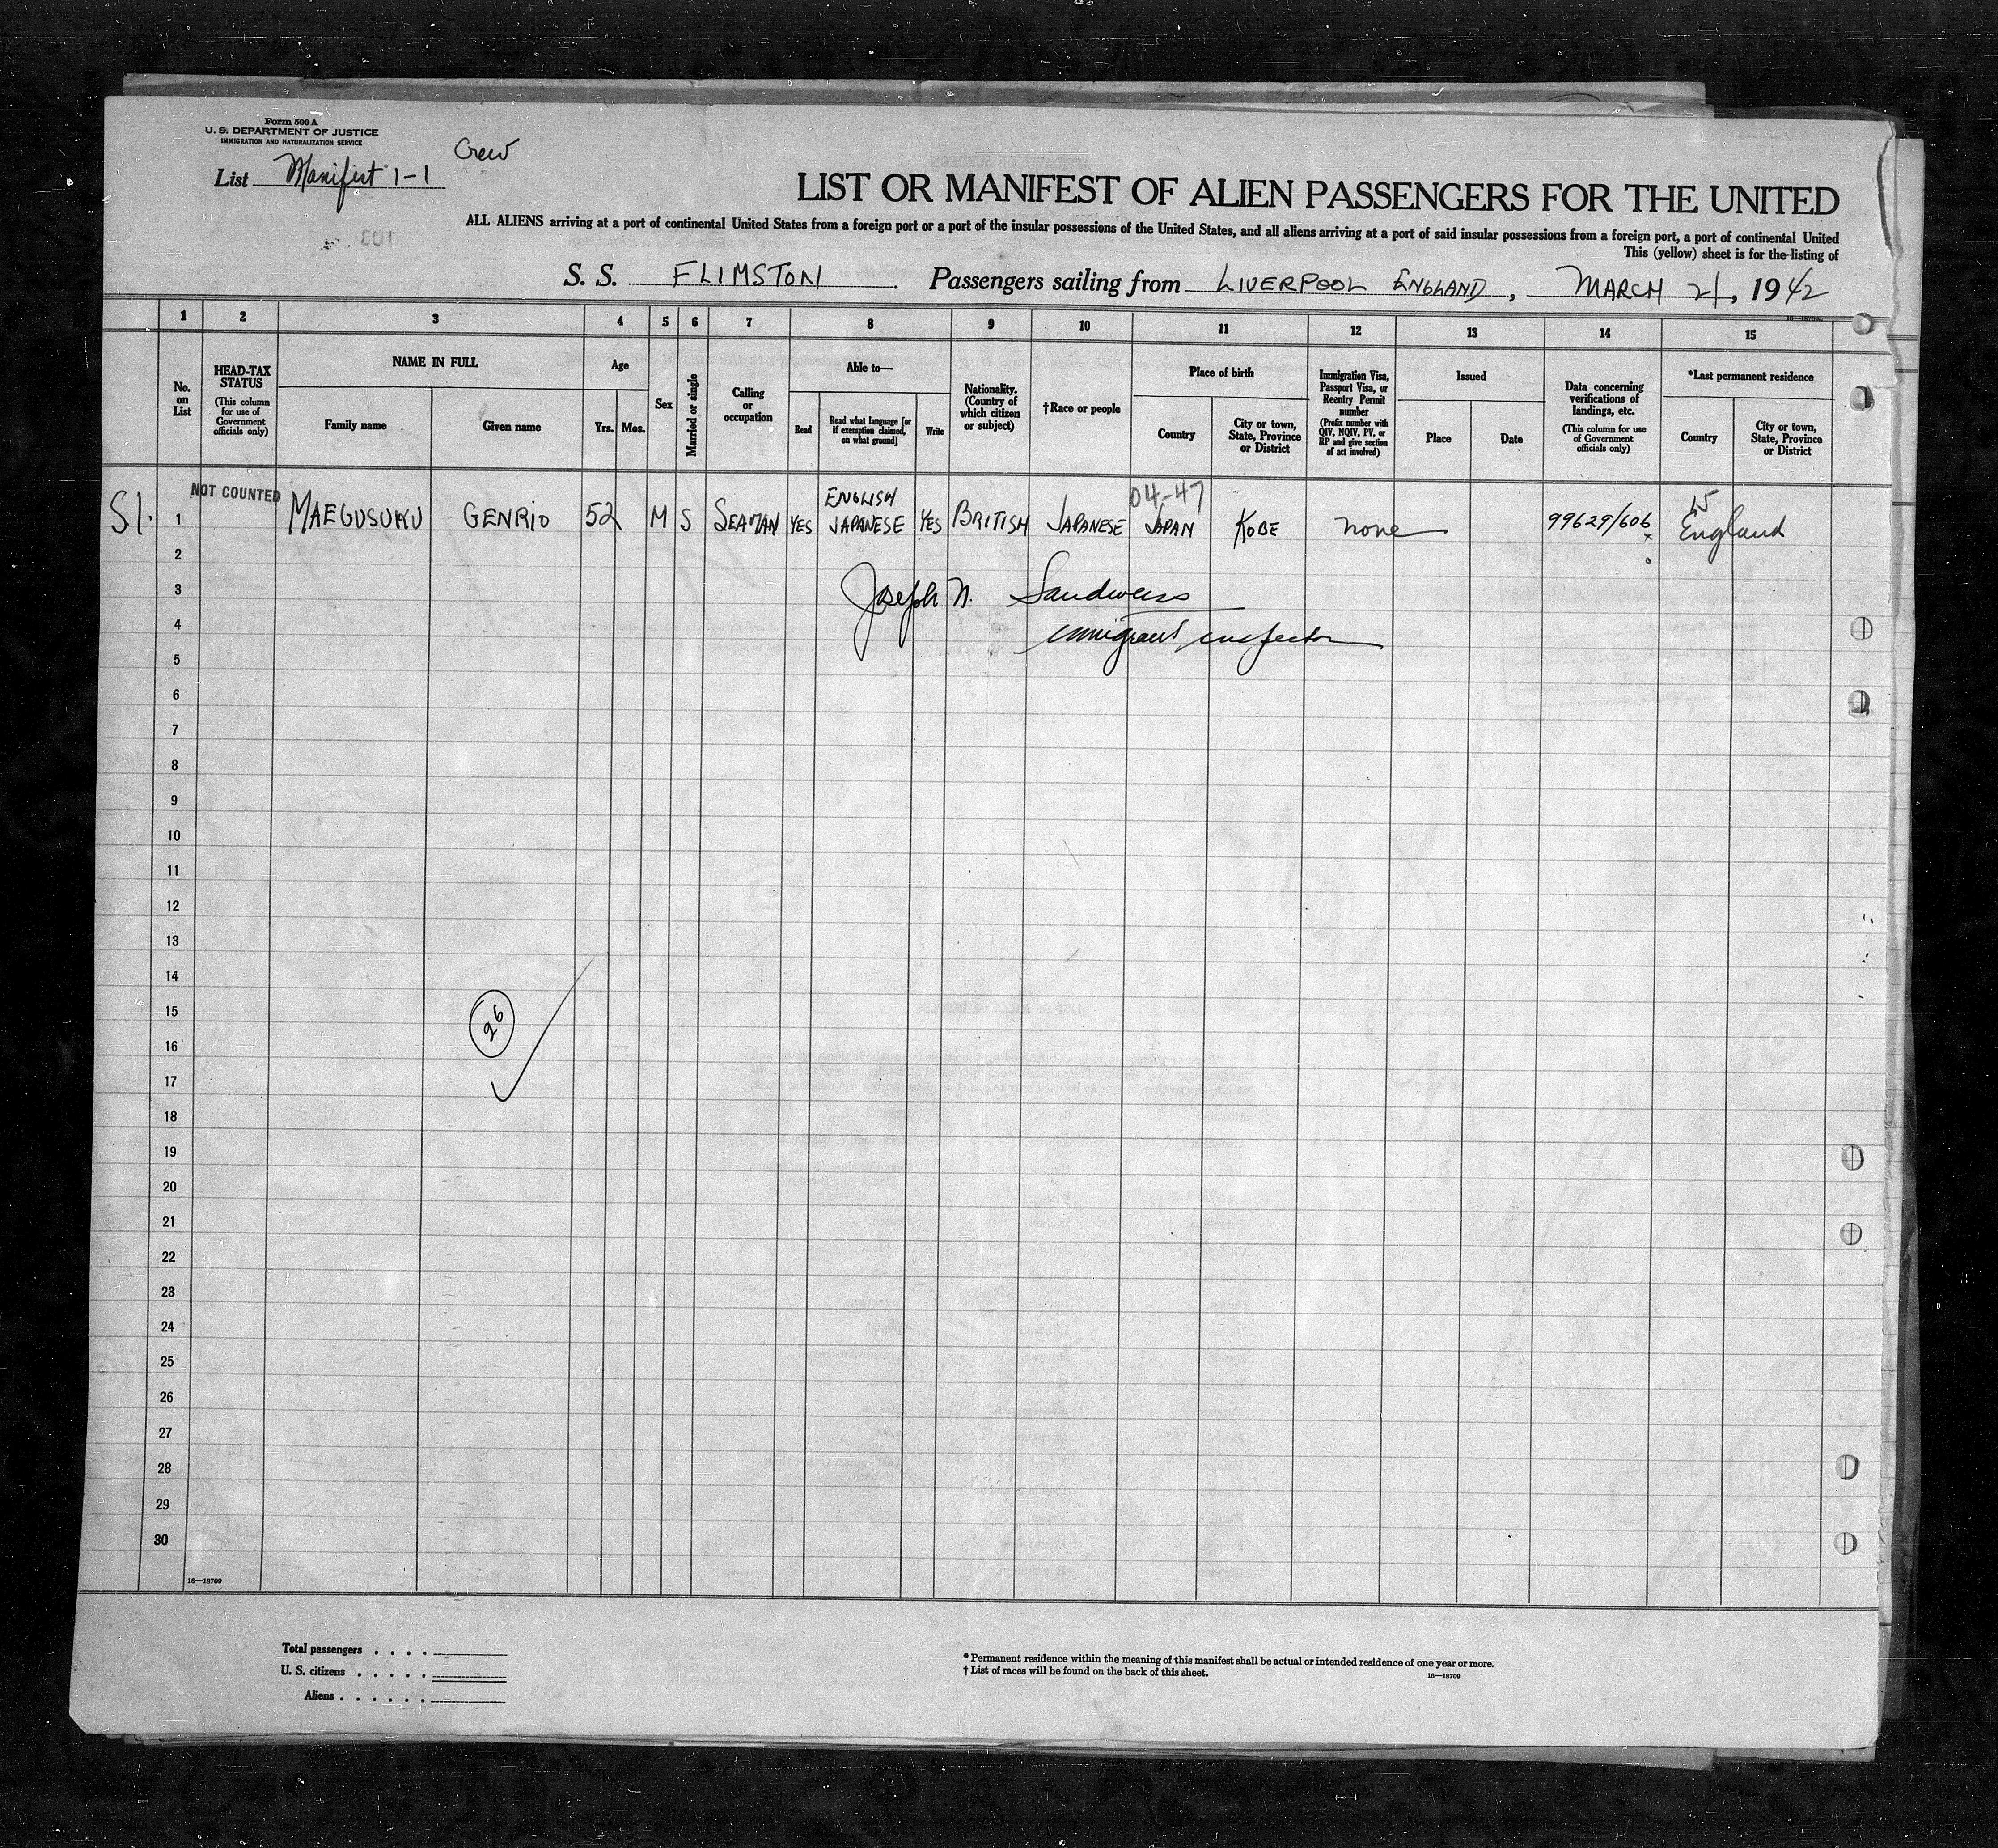 Form 500 A
U. S. DEPARTMENT OF JUSTICE
IMMIGRATION AND NATURALIZATION SERVICE
Crew
List Manifest 1-1
LIST OR MANIFEST OF ALIEN PASSENGERS FOR THE UNITED
ALL ALIENS arriving at a port of continental United States from a foreign port or a port of the insular possessions of the United States, and all aliens arriving at a port of said insular possessions from a foreign port, a port of continental United
This (yellow) sheet is for the listing of
103
S. S. FLIMSTON Passengers sailing from LIVERPOOL ENGLAND, MARCH 21, 1942
1 2 3 4 5 6 7 8 9 10 11 12 13 14 15
No. on List
HEAD-TAX STATUS
(This column for use of Government officials only)
NAME IN FULL
Family name
Given name
Age
Yrs.
Mos.
Sex
Married or single
Calling or occupation
Able to—
Read
Read what language [or if exemption claimed, on what ground]
Write
Nationality. (Country of which citizen or subject)
†Race or people
Place of birth
Country
City or town, State, Province or District
Immigration Visa, Passport Visa, or Reentry Permit number
(Prefix number with QIV, NQIV, PV, or RP and give section of act involved)
Issued
Place
Date
Data concerning verifications of landings, etc.
(This column for use of Government officials only)
*Last permanent residence
Country
City or town, State, Province or District
NOT COUNTED
ENGLISH
04-47
S1. 1 MAEGUSUKU GENRIO 52 M S SEAMAN YES JAPANESE YES BRITISH JAPANESE JAPAN KOBE none 99629/606 England
2
3
Joseph N. Sandweiss
4
immigrant inspector
5
6
7
8
9
10
11
12
13
14
15
26
16
17
18
19
20
21
22
23
24
25
26
27
28
29
30
16—18709
Total passengers . . . .
U. S. citizens . . . . .
Aliens . . . . . .
* Permanent residence within the meaning of this manifest shall be actual or intended residence of one year or more.
† List of races will be found on the back of this sheet.
16—18709